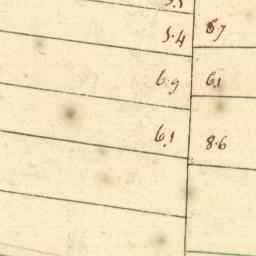 5.4 8.7
6.9 6.1
6.1 8.6